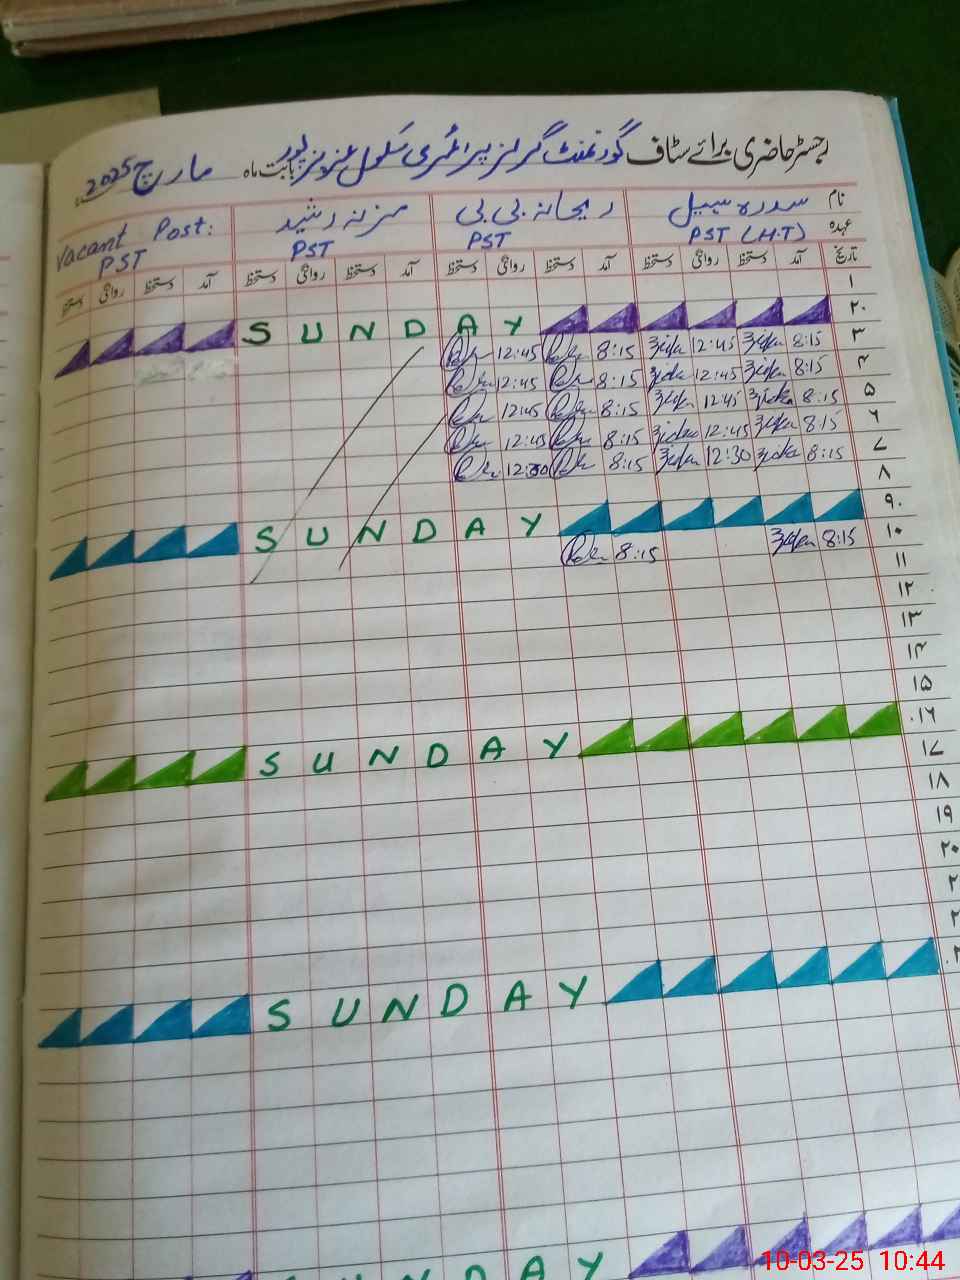 رجسٹر حاضری برائے سٹاف گورنمنٹ گرلز پرائمری سکول عزیز پور بابت ماہ مارچ 2025
نام سدرہ سہیل ریحانہ بی بی مزنہ رشید Vacant Post:
عہدہ PST (H.T) PST PST PST
تاریخ آمد دستخط روانگی دستخط آمد دستخط روانگی دستخط آمد دستخط روانگی دستخط آمد دستخط روانگی دستخط
۱
۲۰ SUNDAY
۳ 8:15 12:45 8:15 12:45
۴ 8:15 12:45 8:15 12:45
۵ 8:15 12:45 8:15 12:45
۶ 8:15 12:45 8:15 12:45
۷ 8:15 12:30 8:15 12:30
۸
۹۰ SUNDAY
۱۰ 8:15 8:15
۱۱
۱۲
۱۳
۱۴
۱۵
۱۶ SUNDAY
۱۷
۱۸
۱۹
۲۰
SUNDAY
SUNDAY
10-03-25 10:44